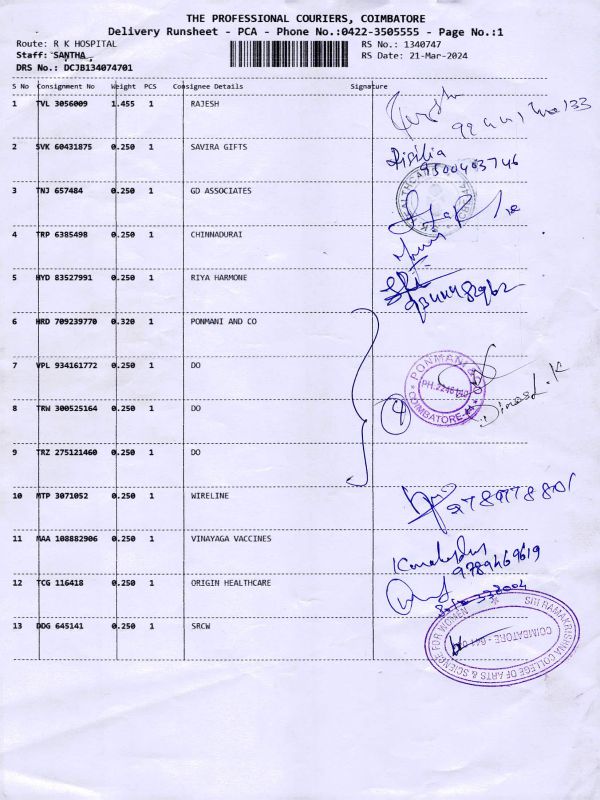 THE PROFESSIONAL COURIERS, COIMBATORE
Delivery Runsheet - PCA - Phone No.:0422-3505555 - Page No.:1
Route: R K HOSPITAL RS No.: 1340747
Staff: SANTHA, RS Date: 21-Mar-2024
DRS No.: DCJB134074701
S No Consignment No Weight PCS Consignee Details Signature
1 TVL 3056009 1.455 1 RAJESH
2 SVK 60431875 0.250 1 SAVIRA GIFTS
9500403746
3 TNJ 657484 0.250 1 GD ASSOCIATES
4 TRP 6385498 0.250 1 CHINNADURAI
5 HYD 83527991 0.250 1 RIYA HARMONE
6 HRD 709239770 0.320 1 PONMANI AND CO
7 VPL 934161772 0.250 1 DO
PONMANI
COIMBATORE
8 TRW 300525164 0.250 1 DO
4
9 TRZ 275121460 0.250 1 DO
10 MTP 3071052 0.250 1 WIRELINE
9789778801
11 MAA 108882906 0.250 1 VINAYAGA VACCINES
9789469619
12 TCG 116418 0.250 1 ORIGIN HEALTHCARE
13 DDG 645141 0.250 1 SRCW
SRI RAMAKRISHNA COLLEGE OF ARTS & SCIENCE FOR WOMEN
COIMBATORE